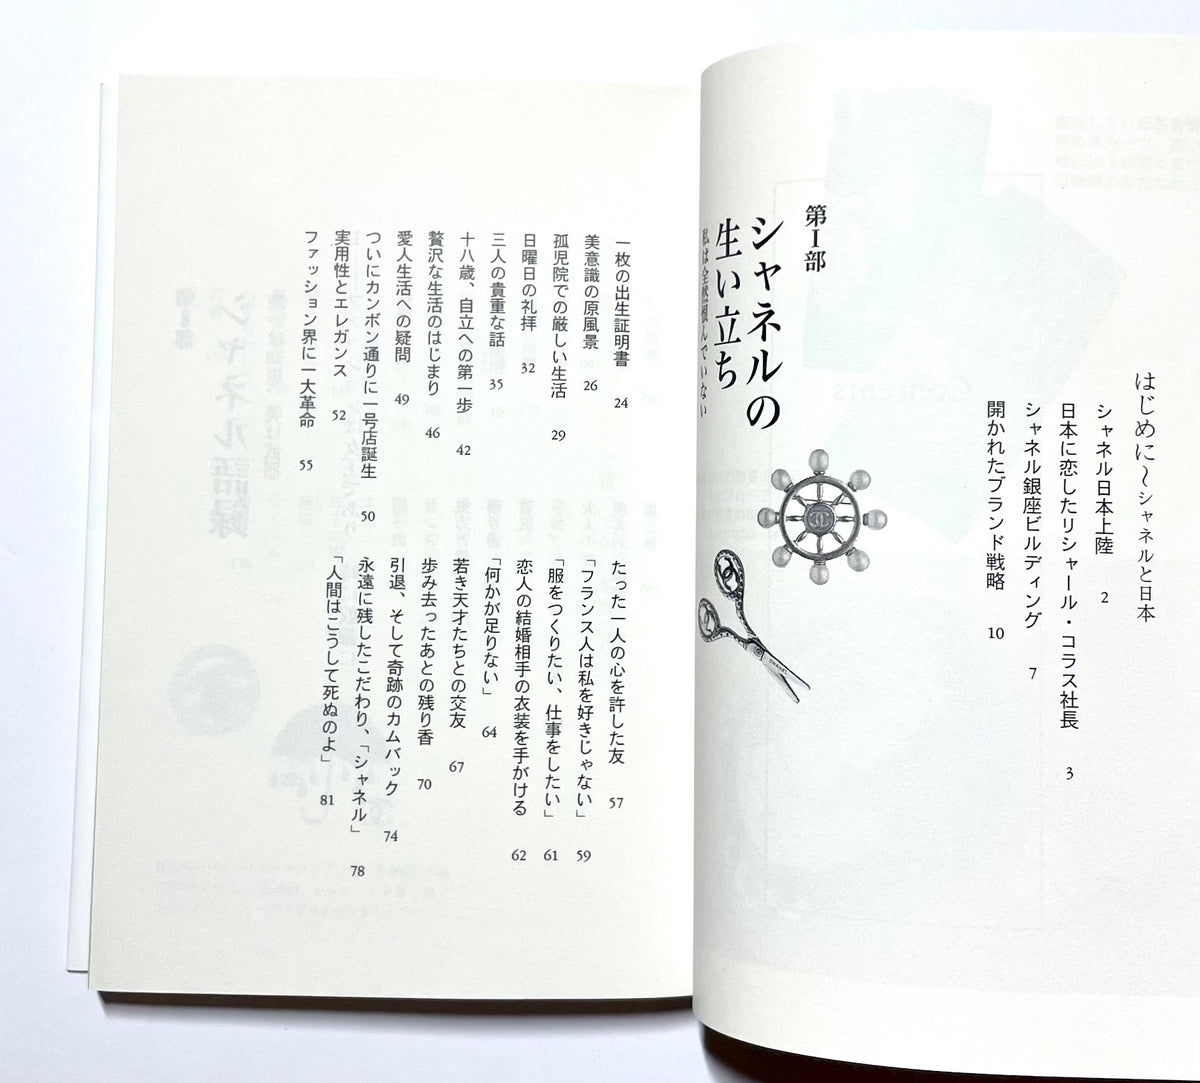 はじめに〜シャネルと日本
シャネル日本上陸 2
日本に恋したリシャール・コラス社長 3
シャネル銀座ビルディング 7
開かれたブランド戦略 10
第Ⅰ部
シャネルの
生い立ち
私は全然恨んでいない
一枚の出生証明書 24
美意識の原風景 26
孤児院での厳しい生活 29
日曜日の礼拝 32
三人の貴重な話 35
十八歳、自立への第一歩 42
贅沢な生活のはじまり 46
愛人生活への疑問 49
ついにカンボン通りに一号店誕生 50
実用性とエレガンス 52
ファッション界に一大革命 55
たった一人の心を許した友 57
「フランス人は私を好きじゃない」 59
「服をつくりたい、仕事をしたい」 61
恋人の結婚相手の衣装を手がける 62
「何かが足りない」 64
若き天才たちとの交友 67
歩み去ったあとの残り香 70
引退、そして奇跡のカムバック 74
永遠に残したこだわり、「シャネル」 78
「人間はこうして死ぬのよ」 81
CHANEL